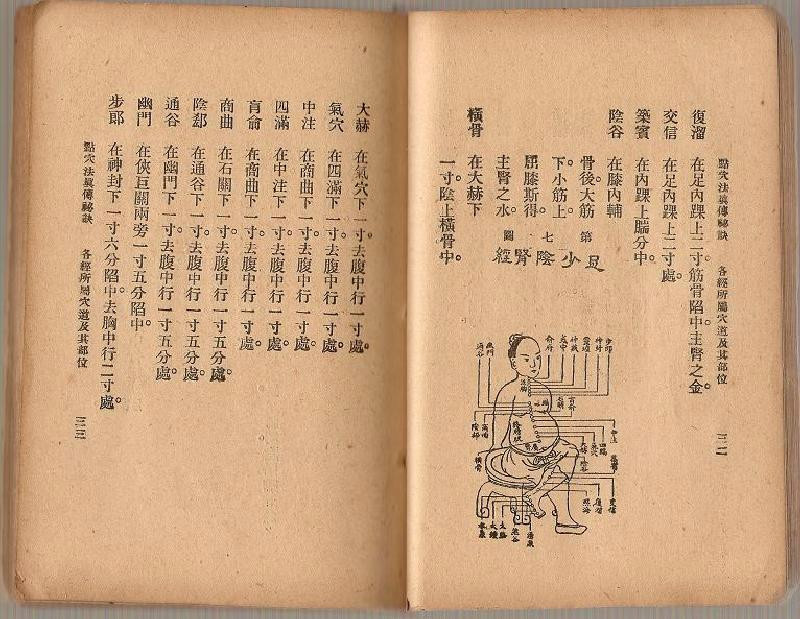 點穴法眞傳秘訣　各經所屬穴道及其部位　三二
復溜　在足內踝上二寸。筋骨陷中。主腎之金。
交信　在足內踝上二寸處。
築賓　在內踝上腨分中。
陰谷　在膝內輔
骨後。大筋
下。小筋上。
屈膝斯得。
主腎之水。
第七圖
足少陰腎經
橫骨　在大赫下
一寸。陰上橫骨中。
步郎
神封
靈墟
神藏
彧中
俞府
幽門
通谷
商曲
陰都
橫骨
四滿
氣穴
大赫
陰谷
交信
復溜
照海
水泉
大鐘
太谿
然谷
湧泉
大赫　在氣穴下一寸。去腹中行一寸處。
氣穴　在四滿下一寸。去腹中行一寸處。
中注　在商曲下一寸。去腹中行一寸處。
四滿　在中注下一寸。去腹中行一寸處。
肓俞　在商曲下一寸。去腹中行一寸處。
商曲　在石關下一寸。去腹中行一寸五分處。
陰都　在通谷下一寸。去腹中行一寸五分處。
通谷　在幽門下一寸。去腹中行一寸五分處。
幽門　在俠巨關兩旁一寸五分陷中。
步郎　在神封下一寸六分陷中。去胸中行二寸處。
點穴法眞傳秘訣　各經所屬穴道及其部位　三三